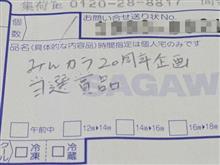 集荷 0120-28-8817
お問い合せ送り状No.
個数
品名(具体的な内容品)時間指定は個人宅のみです
みんカラ20周年企画
当選賞品
午前中 12時〜14時 14時〜16時 16時〜18時
冷凍 冷蔵